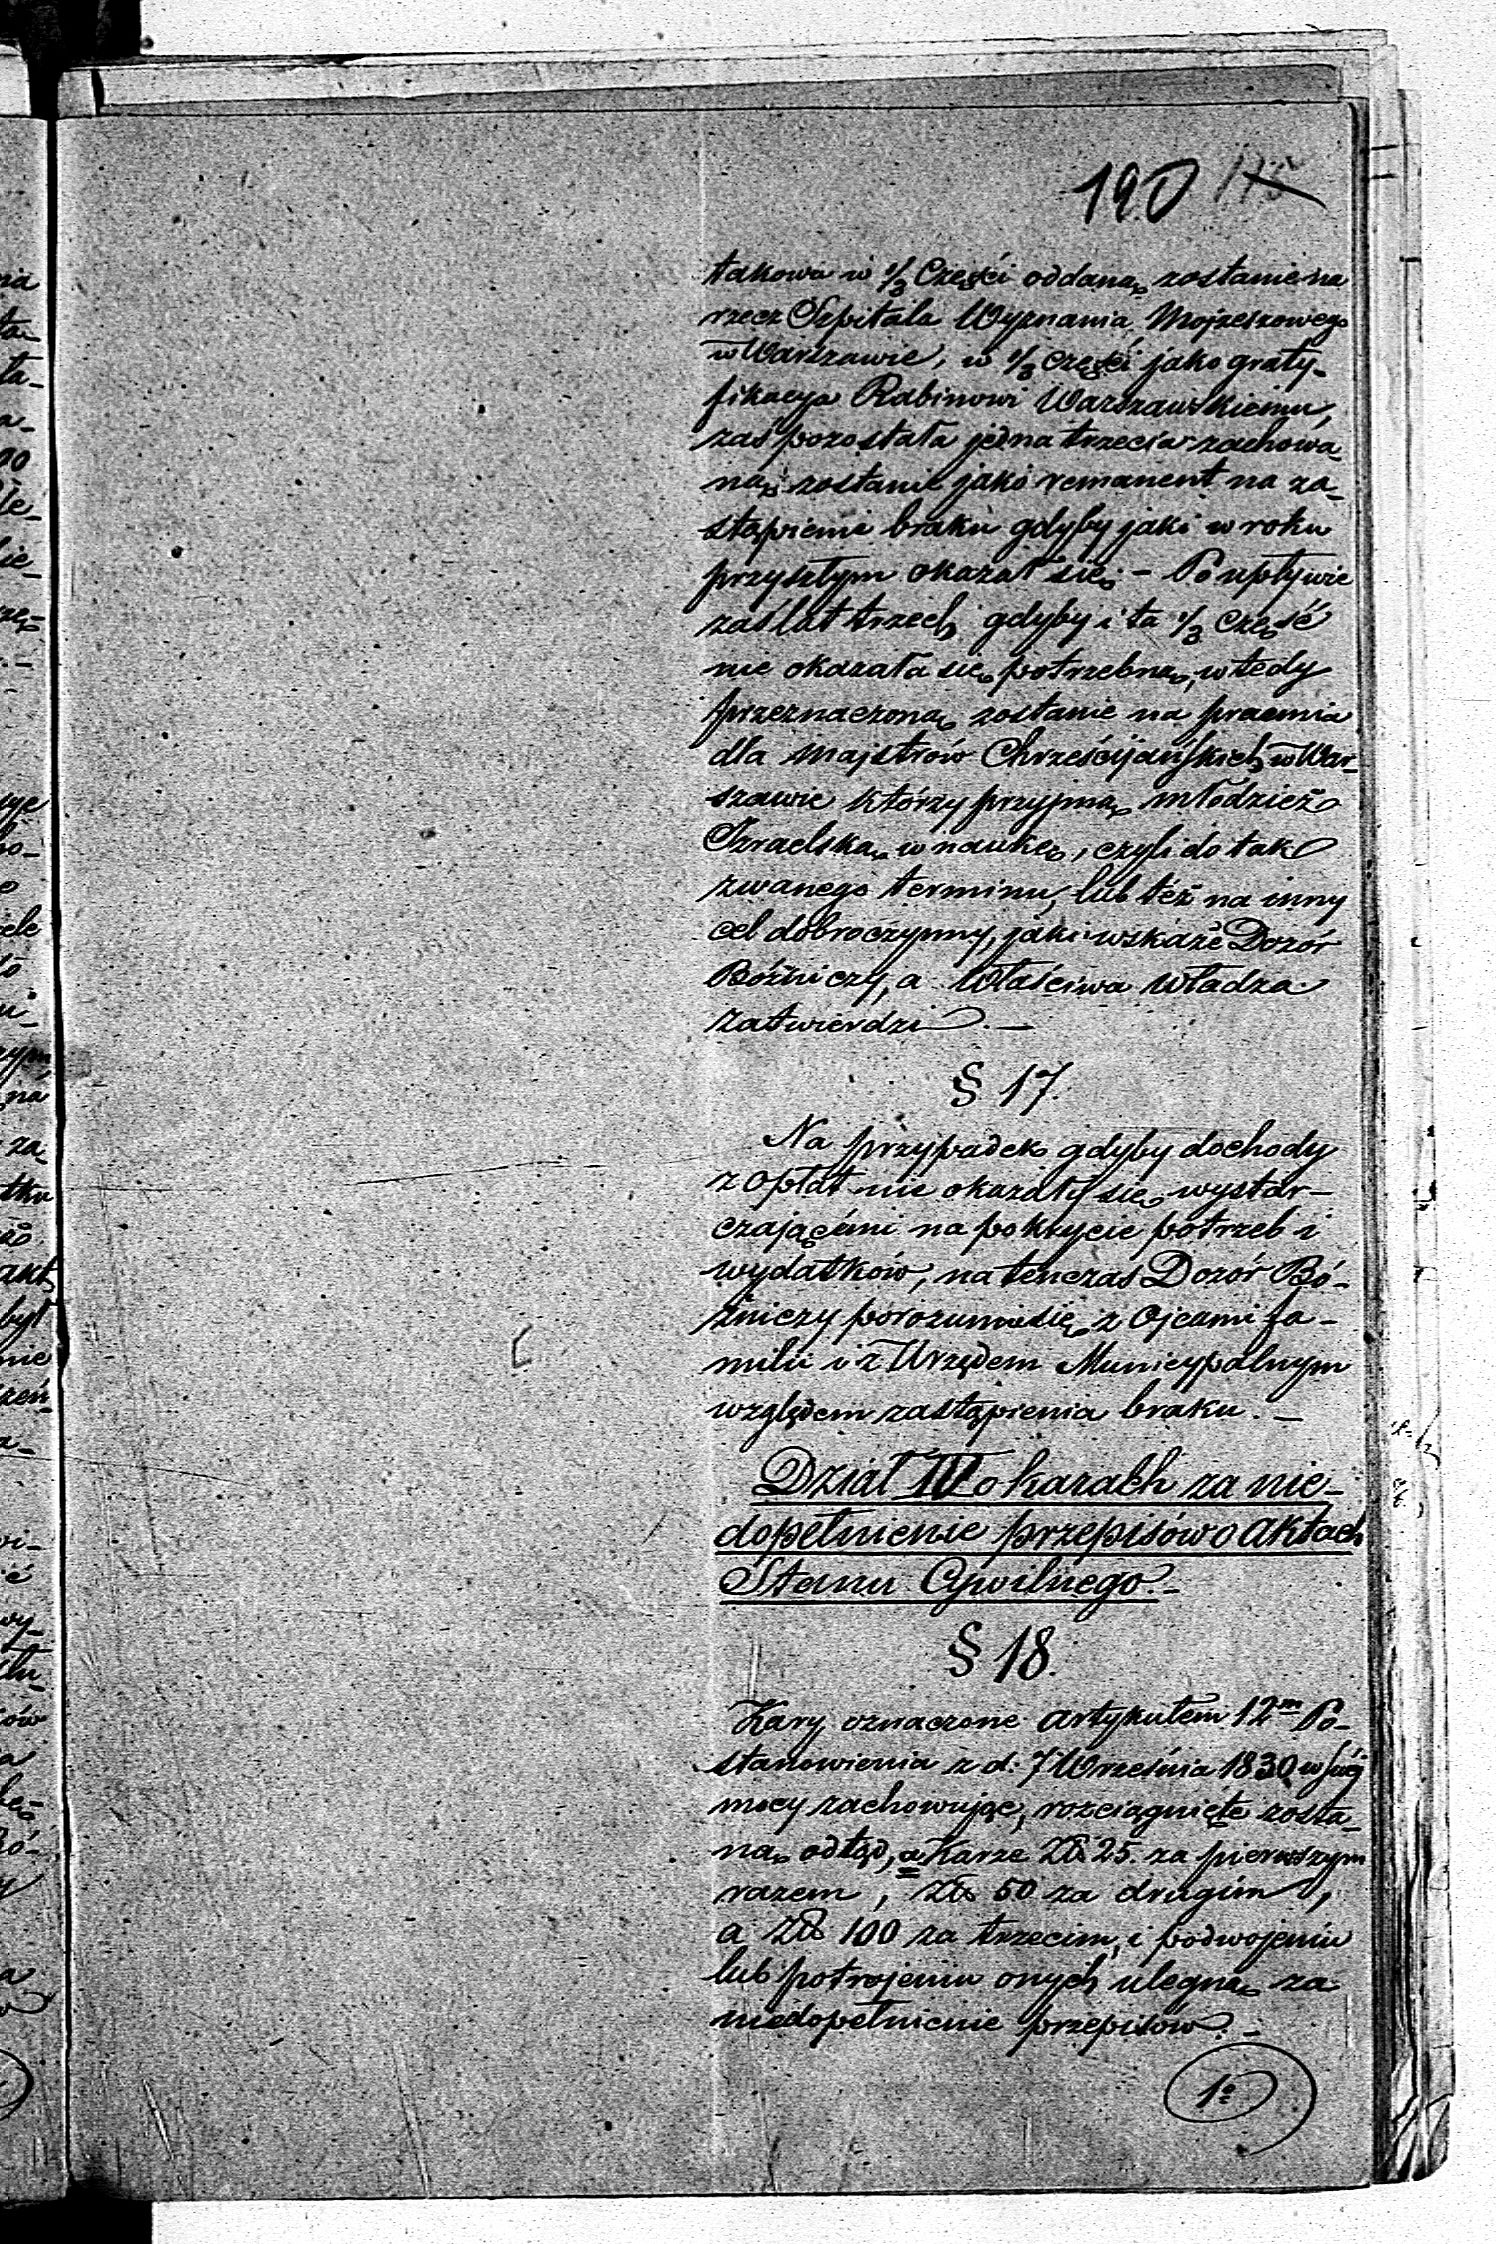 190 115
takowa w 1/3 Części oddaną zostanie na
rzecz Szpitala Wyznania Mojżeszowego
w Warszawie, w 1/3 części jako graty-
fikacya Rabinowi Warszawskiemu,
zaś pozostała jedna trzecia zachowa-
ną zostanie jako remanent na za-
stąpienie braku gdyby jaki w roku
przyszłym okazał się. – Po upływie
zaś lat trzech gdyby i ta 1/3 Część
nie okazała się potrzebną, wtedy
przeznaczoną zostanie na praemia
dla Majstrów Chrześcijańskich w War-
szawie którzy przyjmą młodzież
Izraelską w naukę, czyli do tak
zwanego terminu, lub też na inny
cel dobroczynny, jaki wskaże Dozór
Bóżniczy, a Właściwa Władza
zatwierdzi. –
§ 17.
Na przypadek gdyby dochody
z opłat nie okazały się wystar-
czającemi na pokrycie potrzeb i
wydatków, natenczas Dozór Bó-
żniczy porozumie się z Ojcami fa-
milii i z Urzędem Municypalnym
względem zastąpienia braku. –
Dział IV o karach za nie-
dopełnienie przepisów o Aktach
Stanu Cywilnego. –
§ 18.
Kary oznaczone artykułem 12m Po-
stanowienia z d: 7 Września 1830 w swéj
mocy zachowując, rozciągnięte zosta-
ną odtąd, a Karze Zł 25. za pierwszym
razem, Zł 50 za drugim,
a Zł 100 za trzecim, i podwojeniu
lub potrojeniu onych ulegną za
niedopełnienie przepisów. –
1o